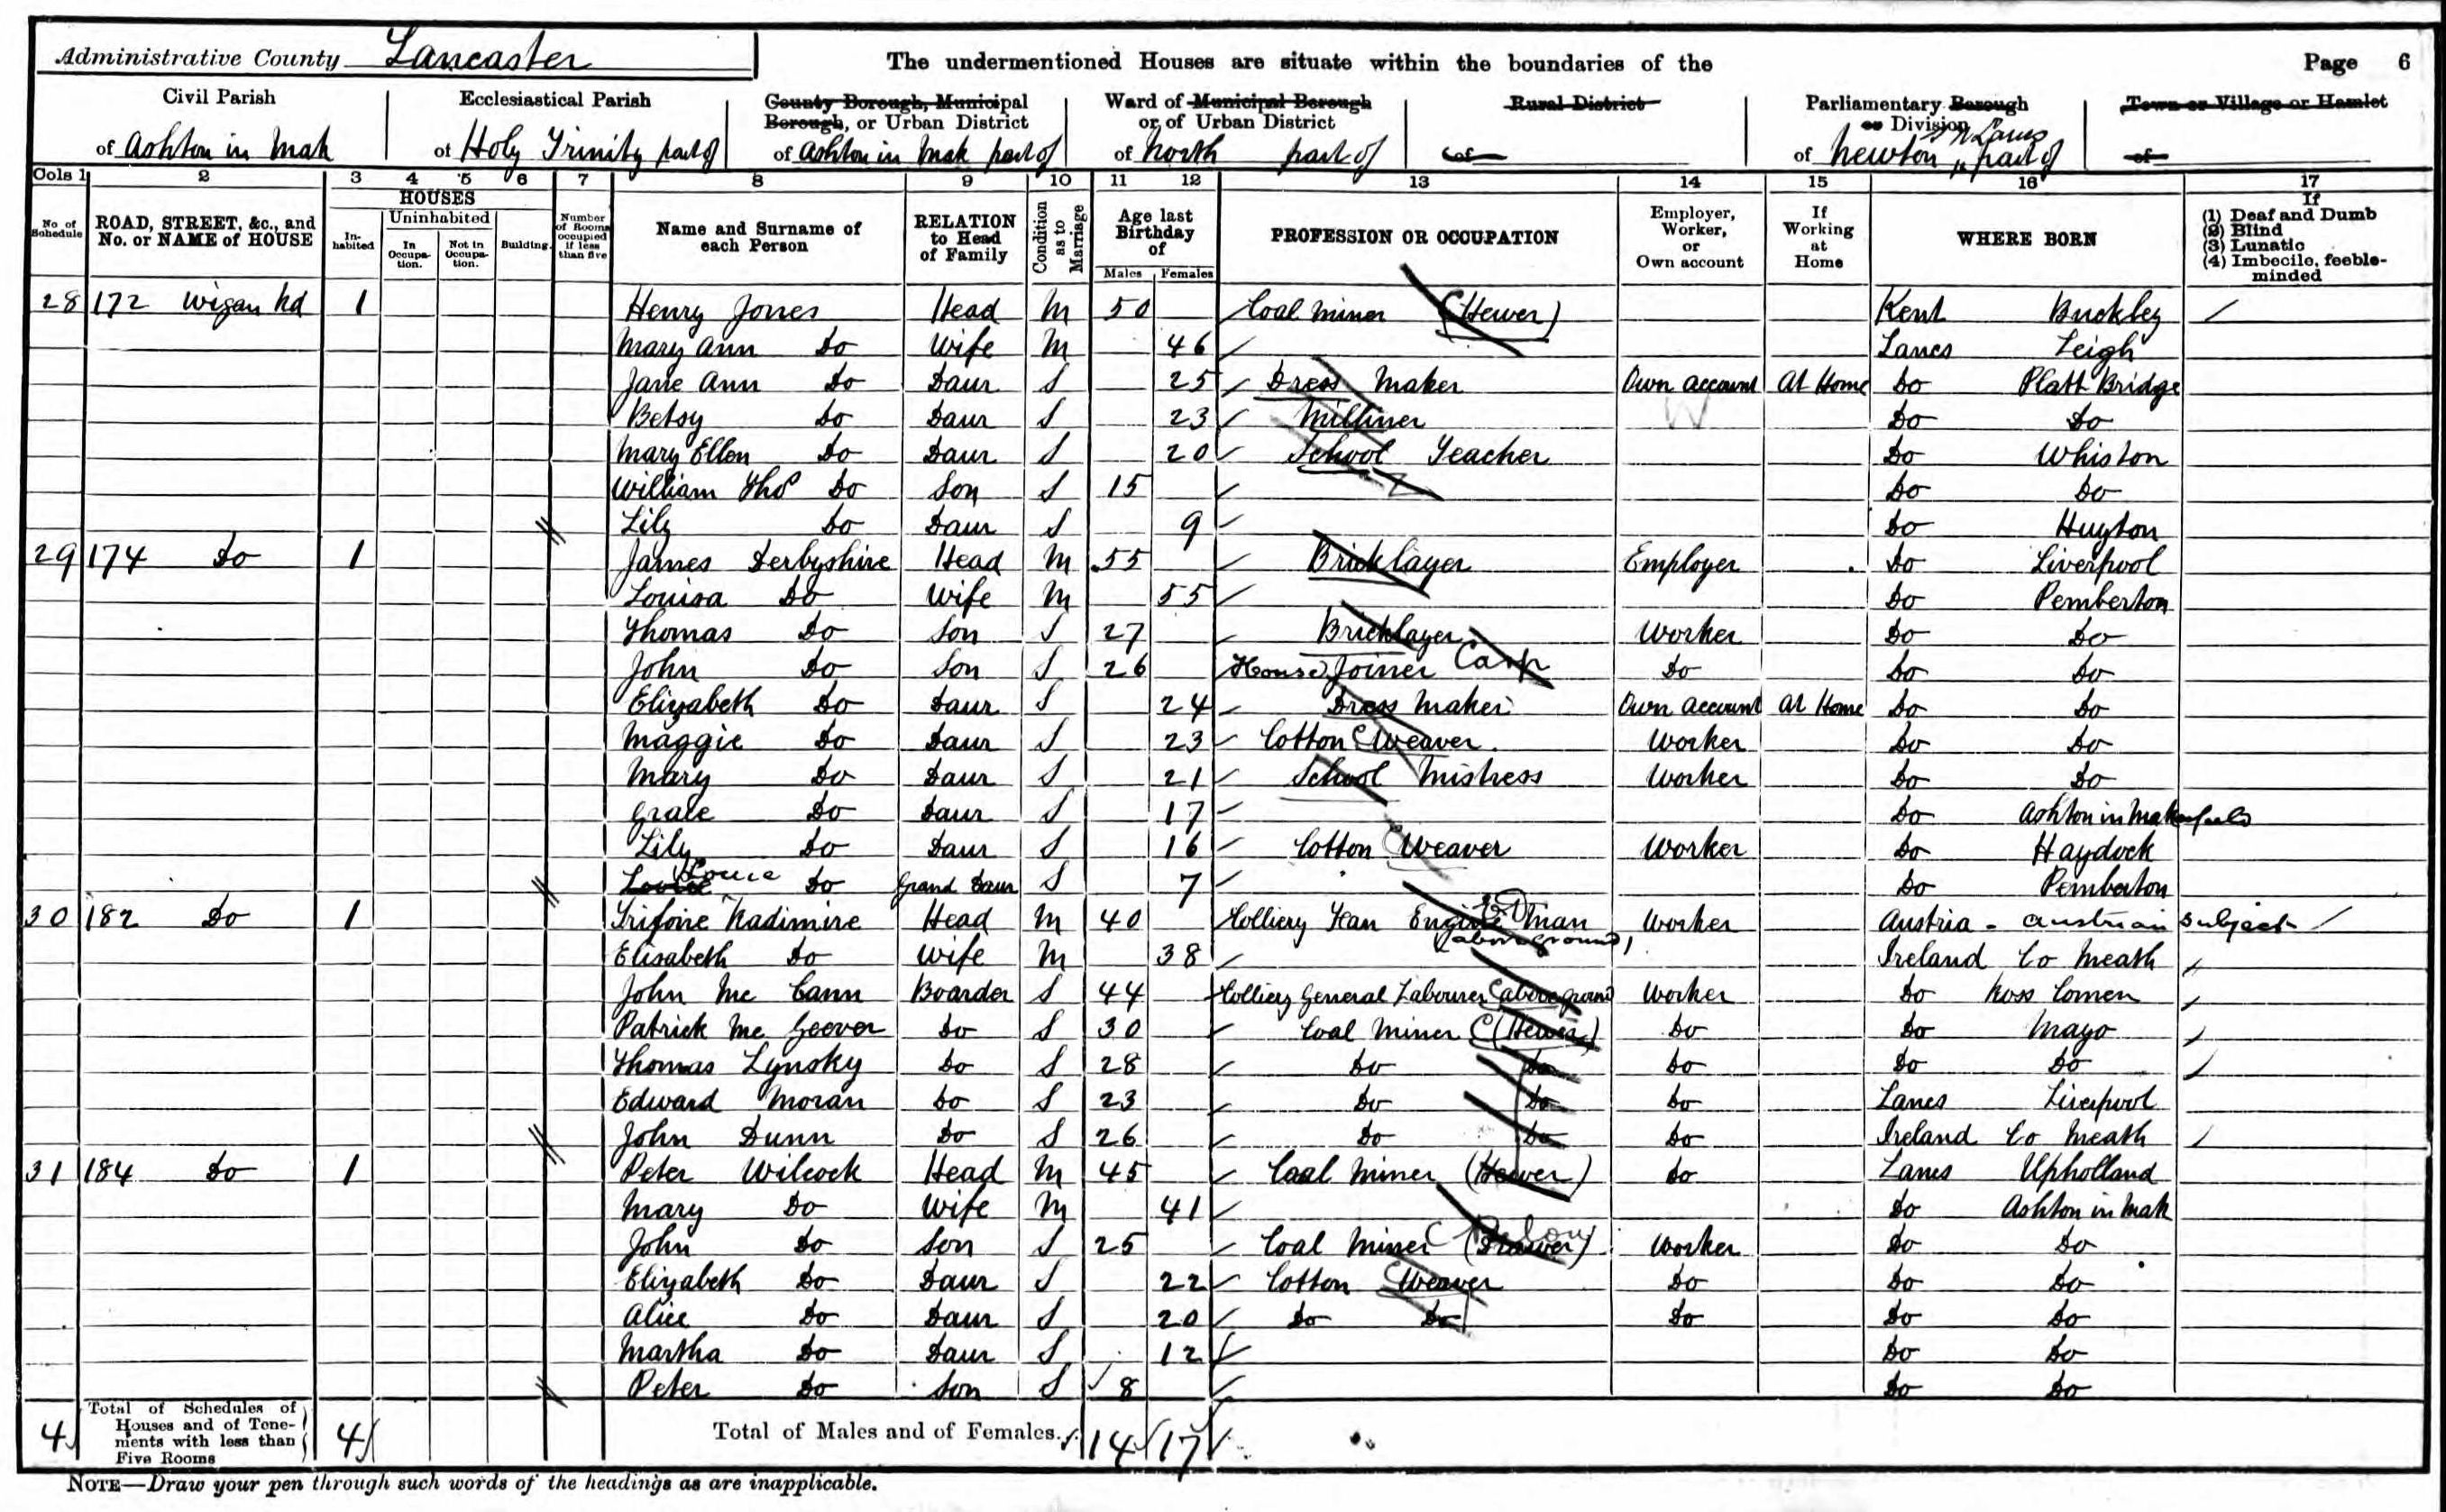 Administrative County Lancaster
The undermentioned Houses are situate within the boundaries of the
Page 6
Civil Parish of Ashton in Mak
Ecclesiastical Parish of Holy Trinity part of
County Borough, Municipal Borough, or Urban District of Ashton in Mak part of
Ward of Municipal Borough or of Urban District of North part of
Rural District of
Parliamentary Borough or Division of Newton part of
Town or Village or Hamlet of
Cols 1 2 3 4 5 6 7 8 9 10 11 12 13 14 15 16 17
No. of Schedule
ROAD, STREET, &c., and No. or NAME of HOUSE
HOUSES
Inhabited
Uninhabited
In Occupation.
Not in Occupation.
Building.
Number of Rooms occupied if less than five
Name and Surname of each Person
RELATION to Head of Family
Condition as to Marriage
Age last Birthday of
Males Females
PROFESSION OR OCCUPATION
Employer, Worker, or Own account
If Working at Home
WHERE BORN
If
(1) Deaf and Dumb
(2) Blind
(3) Lunatic
(4) Imbecile, feeble-minded
28 172 Wigan Rd 1 Henry Jones Head M 50 Coal Miner (Hewer) Kent Buckley
Mary Ann Do Wife M 46 Lancs Leigh
Jane Ann Do Daur S 25 Dress Maker Own account At Home Do Platt Bridge
Betsy Do Daur S 23 Milliner W Do Do
Mary Ellen Do Daur S 20 School Teacher Do Whiston
William Thos Do Son S 15 Do Do
Lily Do Daur S 9 Do Huyton
29 174 Do 1 James Derbyshire Head M 55 Bricklayer Employer Do Liverpool
Louisa Do Wife M 55 Do Pemberton
Thomas Do Son S 27 Bricklayer Worker Do Do
John Do Son S 26 House Joiner Carp Do Do Do
Elizabeth Do Daur S 24 Dress Maker Own account At Home Do Do
Maggie Do Daur S 23 Cotton Weaver Worker Do Do
Mary Do Daur S 21 School Mistress Worker Do Do
Grace Do Daur S 17 Do Ashton in Makerfield
Lily Do Daur S 16 Cotton Weaver Worker Do Haydock
Louie Do Grand Daur S 7 Do Pemberton
30 182 Do 1 Trifoire Nadimire Head M 40 Colliery Fan Engine man (above ground) Worker Austria - Austrian Subject
Elisabeth Do Wife M 38 Ireland Co Meath
John Mc Cann Boarder S 44 Colliery General Labourer (above ground) Worker Do Ross Comen
Patrick Mc Geever Do S 30 Coal Miner (Hewer) Do Do Mayo
Thomas Lynsky Do S 28 Do Do Do Do Do
Edward Moran Do S 23 Do Do Do Lancs Liverpool
John Dunn Do S 26 Do Do Do Ireland Co Meath
31 184 Do 1 Peter Wilcock Head M 45 Coal Miner (Hewer) Do Lancs Upholland
Mary Do Wife M 41 Do Ashton in Mak
John Do Son S 25 Coal Miner (Drawer) Below Worker Do Do
Elizabeth Do Daur S 22 Cotton Weaver Do Do Do
Alice Do Daur S 20 Do Do Do Do Do
Martha Do Daur S 12 Do Do
Peter Do Son S 8 Do Do
4 Total of Schedules of Houses and of Tenements with less than Five Rooms 4
Total of Males and of Females. 14 17
NOTE—Draw your pen through such words of the headings as are inapplicable.